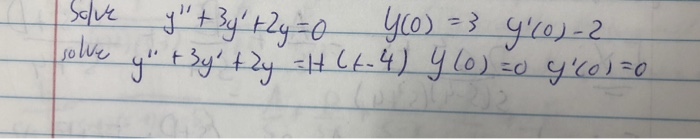 Solve y'' + 3y' + 2y = 0 y(0) = 3 y'(0) - 2
solve y'' + 3y' + 2y = H(t-4) y(0) = 0 y'(0) = 0